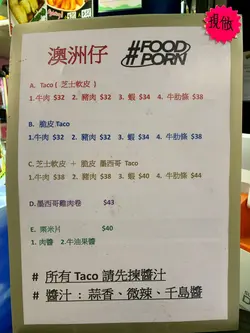 現做
澳洲仔 #FOOD PORN
A. Taco ( 芝士軟皮 )
1.牛肉 $32 2. 豬肉 $32 3. 蝦 $34 4. 牛肋條 $38
B. 脆皮 Taco
1.牛肉 $32 2. 豬肉 $32 3. 蝦 $34 4. 牛肋條 $38
C. 芝士軟皮 + 脆皮 墨西哥 Taco
1.牛肉 $38 2. 豬肉 $38 3. 蝦 $40 4. 牛肋條 $44
D.墨西哥雞肉卷 $43
E. 粟米片 $40
1. 肉醬 2.牛油果醬
# 所有 Taco 請先揀醬汁
# 醬汁 : 蒜香、微辣、千島醬